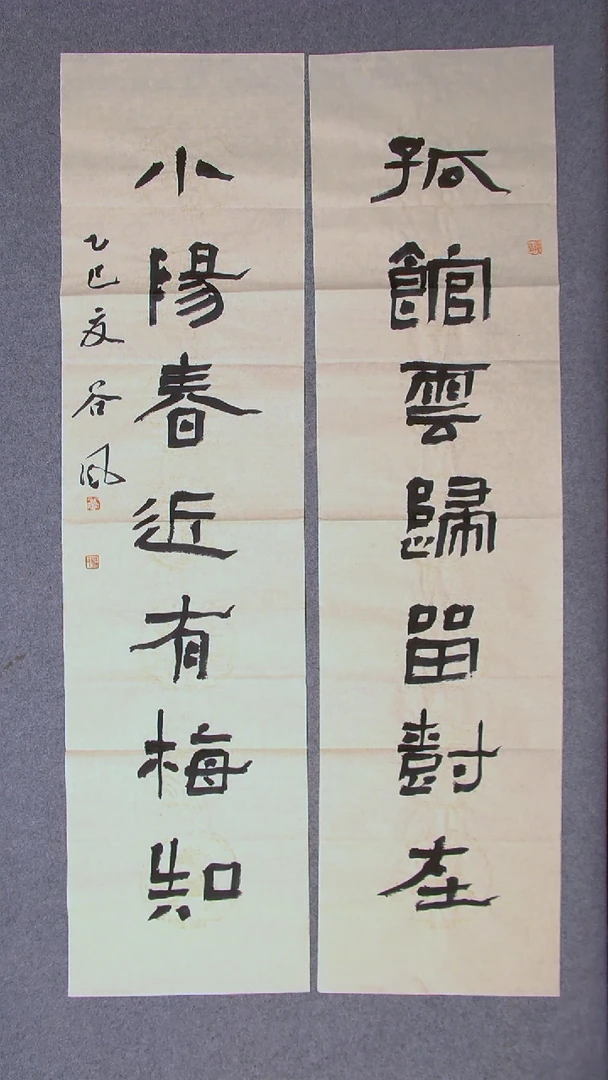 孤館雲歸留在
小陽春近有梅知
乙巳夏谷風